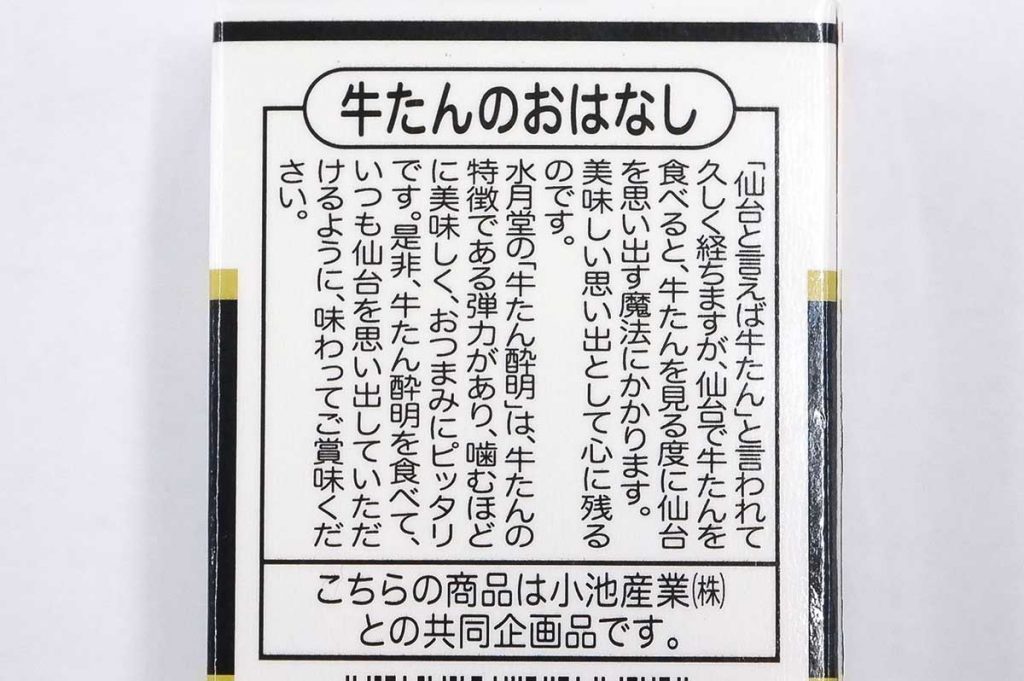 牛たんのおはなし
「仙台と言えば牛たん」と言われて
久しく経ちますが、仙台で牛たんを
食べると、牛たんを見る度に仙台
を思い出す魔法にかかります。
美味しい思い出として心に残る
のです。
水月堂の「牛たん酔明」は、牛たんの
特徴である弾力があり、噛むほど
に美味しく、おつまみにピッタリ
です。是非、牛たん酔明を食べて、
いつも仙台を思い出していただ
けるように、味わってご賞味くだ
さい。
こちらの商品は小池産業㈱
との共同企画品です。